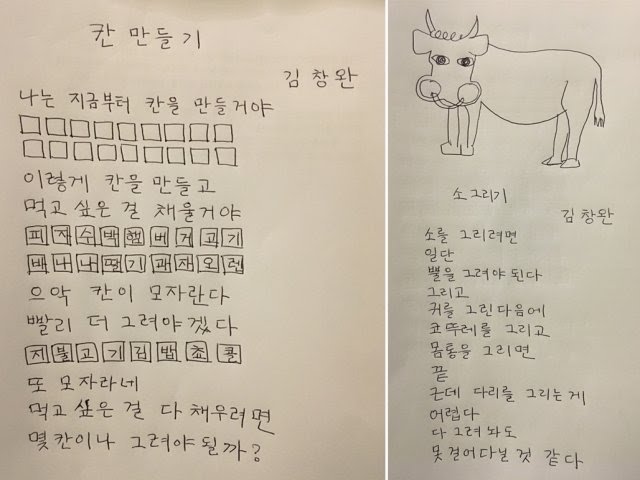 칸 만들기
김창완
나는 지금부터 칸을 만들거야
이렇게 칸을 만들고
먹고 싶은 걸 채울거야
피자수박햄버거고기
바나나딸기과자오렌
으악 칸이 모자란다
빨리 더 그려야겠다
지불고기김밥쵸콜
또 모자라네
먹고 싶은 걸 다 채우려면
몇칸이나 그려야 될까?
소 그리기
김창완
소를 그리려면
일단
뿔을 그려야 된다
그리고
귀를 그린다음에
코뚜레를 그리고
몸통을 그리면
끝
근데 다리를 그리는게
어렵다
다 그려 놔도
못 걸어다닐 것 같다